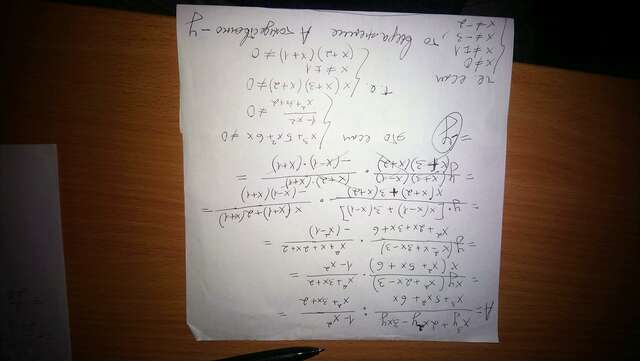 A = x³y + 2x²y - 3xy / x³ + 5x² + 6x : 1 - x² / x² + 3x + 2 =
= xy(x² + 2x - 3) / x(x² + 5x + 6) · x² + 3x + 2 / 1 - x² =
= y(x² - x + 3x - 3) / x² + 2x + 3x + 6 · x² + x + 2x + 2 / -(x² - 1) =
= y·[x(x-1) + 3(x-1)] / x(x+2) + 3(x+2) · x(x+1) + 2(x+1) / -(x-1)(x+1) =
= y(x+3)(x-1) / (x+3)(x+2) · (x+2)·(x+1) / -(x-1)·(x+1) =
= -y это если { x³ + 5x² + 6x ≠ 0
1 - x² / x² + 3x + 2 ≠ 0
т.е. { x(x+3)(x+2) ≠ 0
x ≠ ±1
(x+2)(x+1) ≠ 0
т.е. если { x ≠ 0
x ≠ ±1
x ≠ -3, то выражение А тождественно -y
x ≠ -2